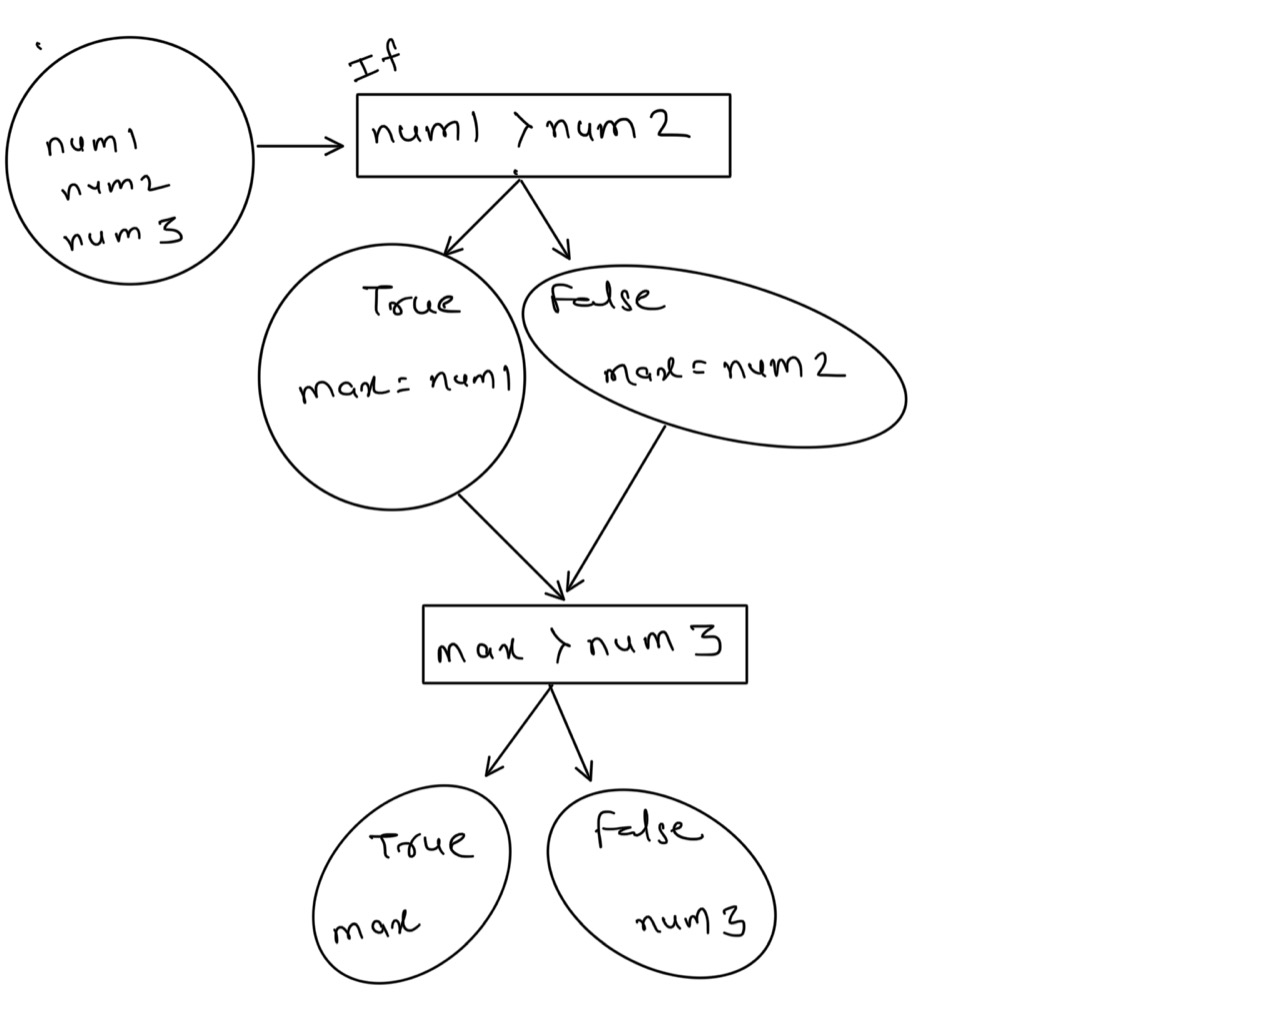 num1
num2
num 3
If
num1 > num 2
True
max = num1
False
max = num 2
max > num 3
True
max
False
num 3